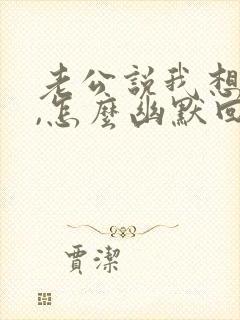 老公說我想
,怎麼幽默回
賈潔